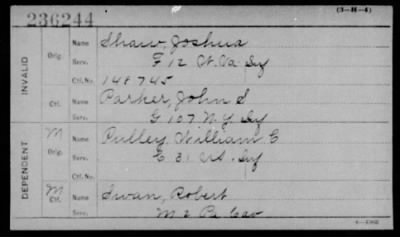 236244
(3-H-4)
INVALID
Orig. Name Shaw, Joshua
Serv. F 12 W. Va. Inf
Ctf. No. 148745
Ctf. Name Parker, John S
Serv. G 107 N.Y. Inf
DEPENDENT
M Orig. Name Pulley, William E
Serv. E 31 US. Inf
Ctf. No.
M Ctf. Name Swan, Robert
Serv. M 2 Pa Cav